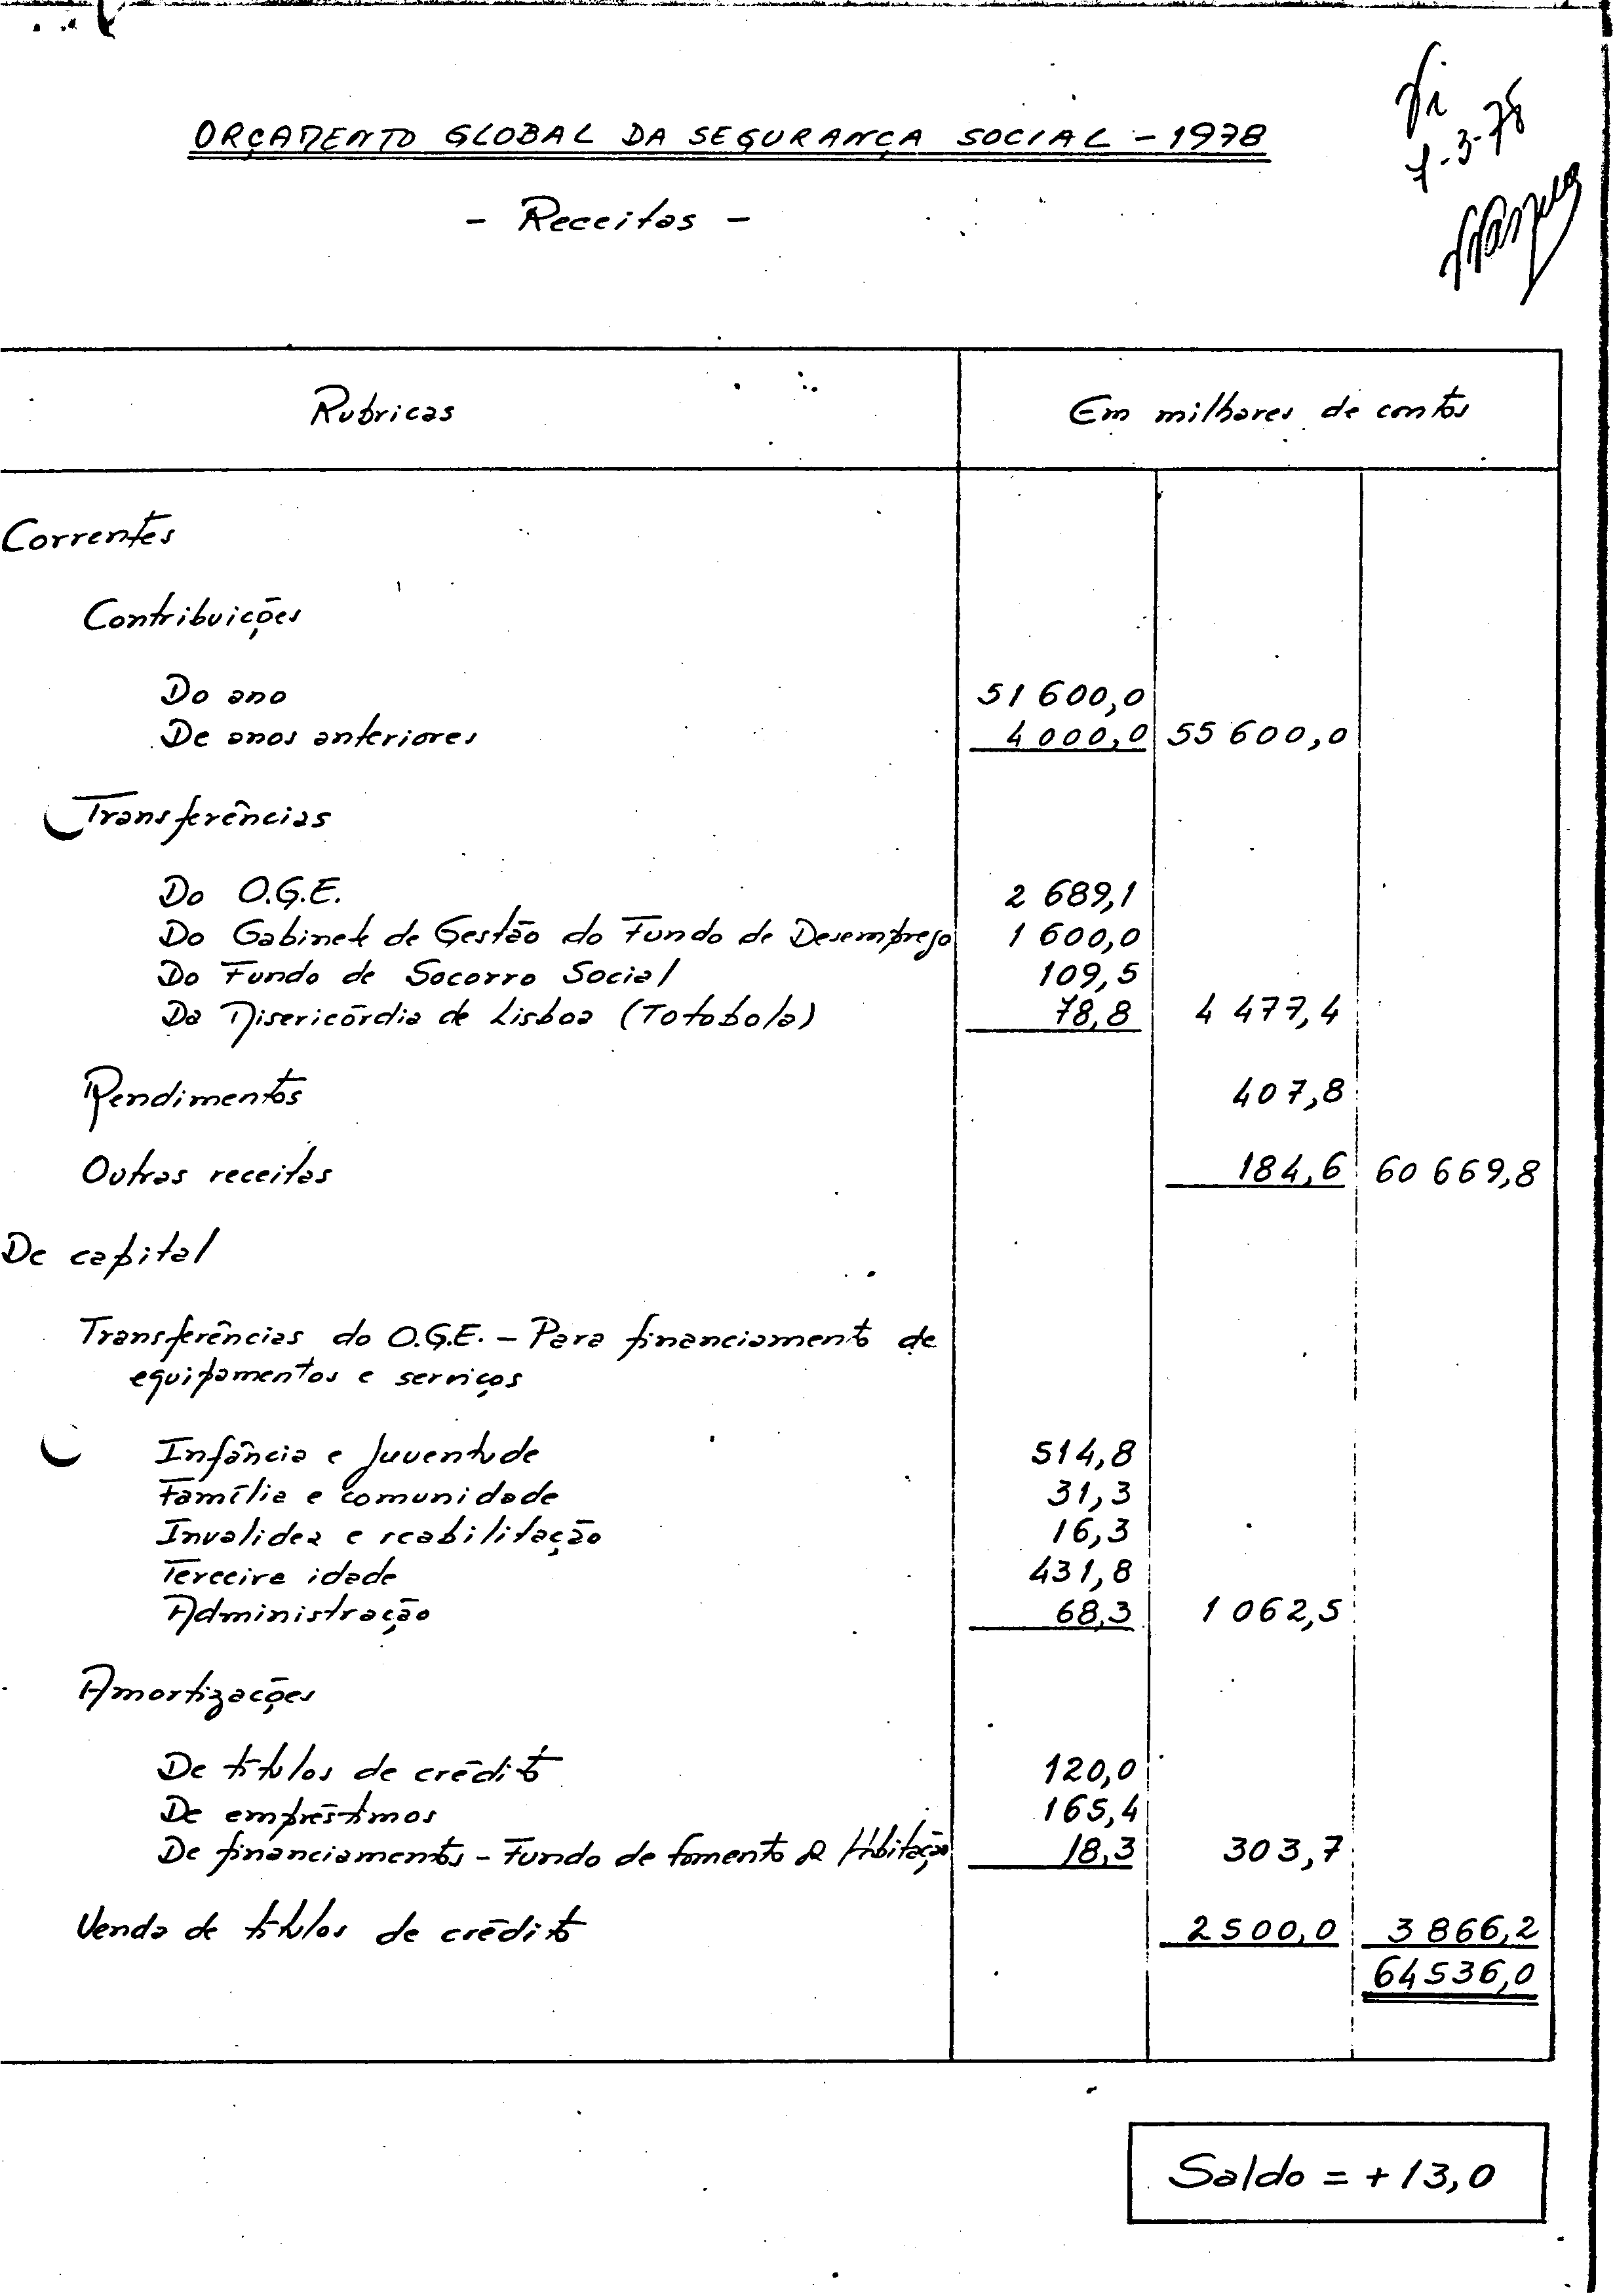 ORÇAMENTO GLOBAL DA SEGURANÇA SOCIAL - 1978
- Receitas -
Vi
7-3-78
Rubricas Em milhares de contos
Correntes
Contribuições
Do ano 51 600,0
De anos anteriores 4 000,0 55 600,0
Transferências
Do O.G.E. 2 689,1
Do Gabinete de Gestão do Fundo de Desemprego 1 600,0
Do Fundo de Socorro Social 109,5
Da Misericórdia de Lisboa (Totobola) 78,8 4 477,4
Rendimentos 407,8
Outras receitas 184,6 60 669,8
De capital
Transferências do O.G.E. - Para financiamento de
equipamentos e serviços
Infância e Juventude 514,8
Família e comunidade 31,3
Invalidez e reabilitação 16,3
Terceira idade 431,8
Administração 68,3 1 062,5
Amortizações
De títulos de crédito 120,0
De empréstimos 165,4
De financiamentos - Fundo de fomento de Hbitação 18,3 303,7
Venda de títulos de crédito 2 500,0 3 866,2
64 536,0
Saldo = + 13,0